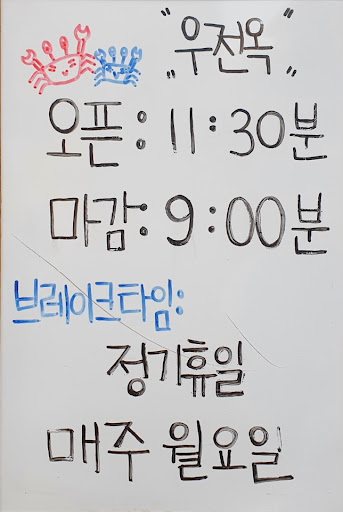 "우전옥"
오픈: 11:30분
마감: 9:00분
브레이크타임:
정기휴일
매주 월요일